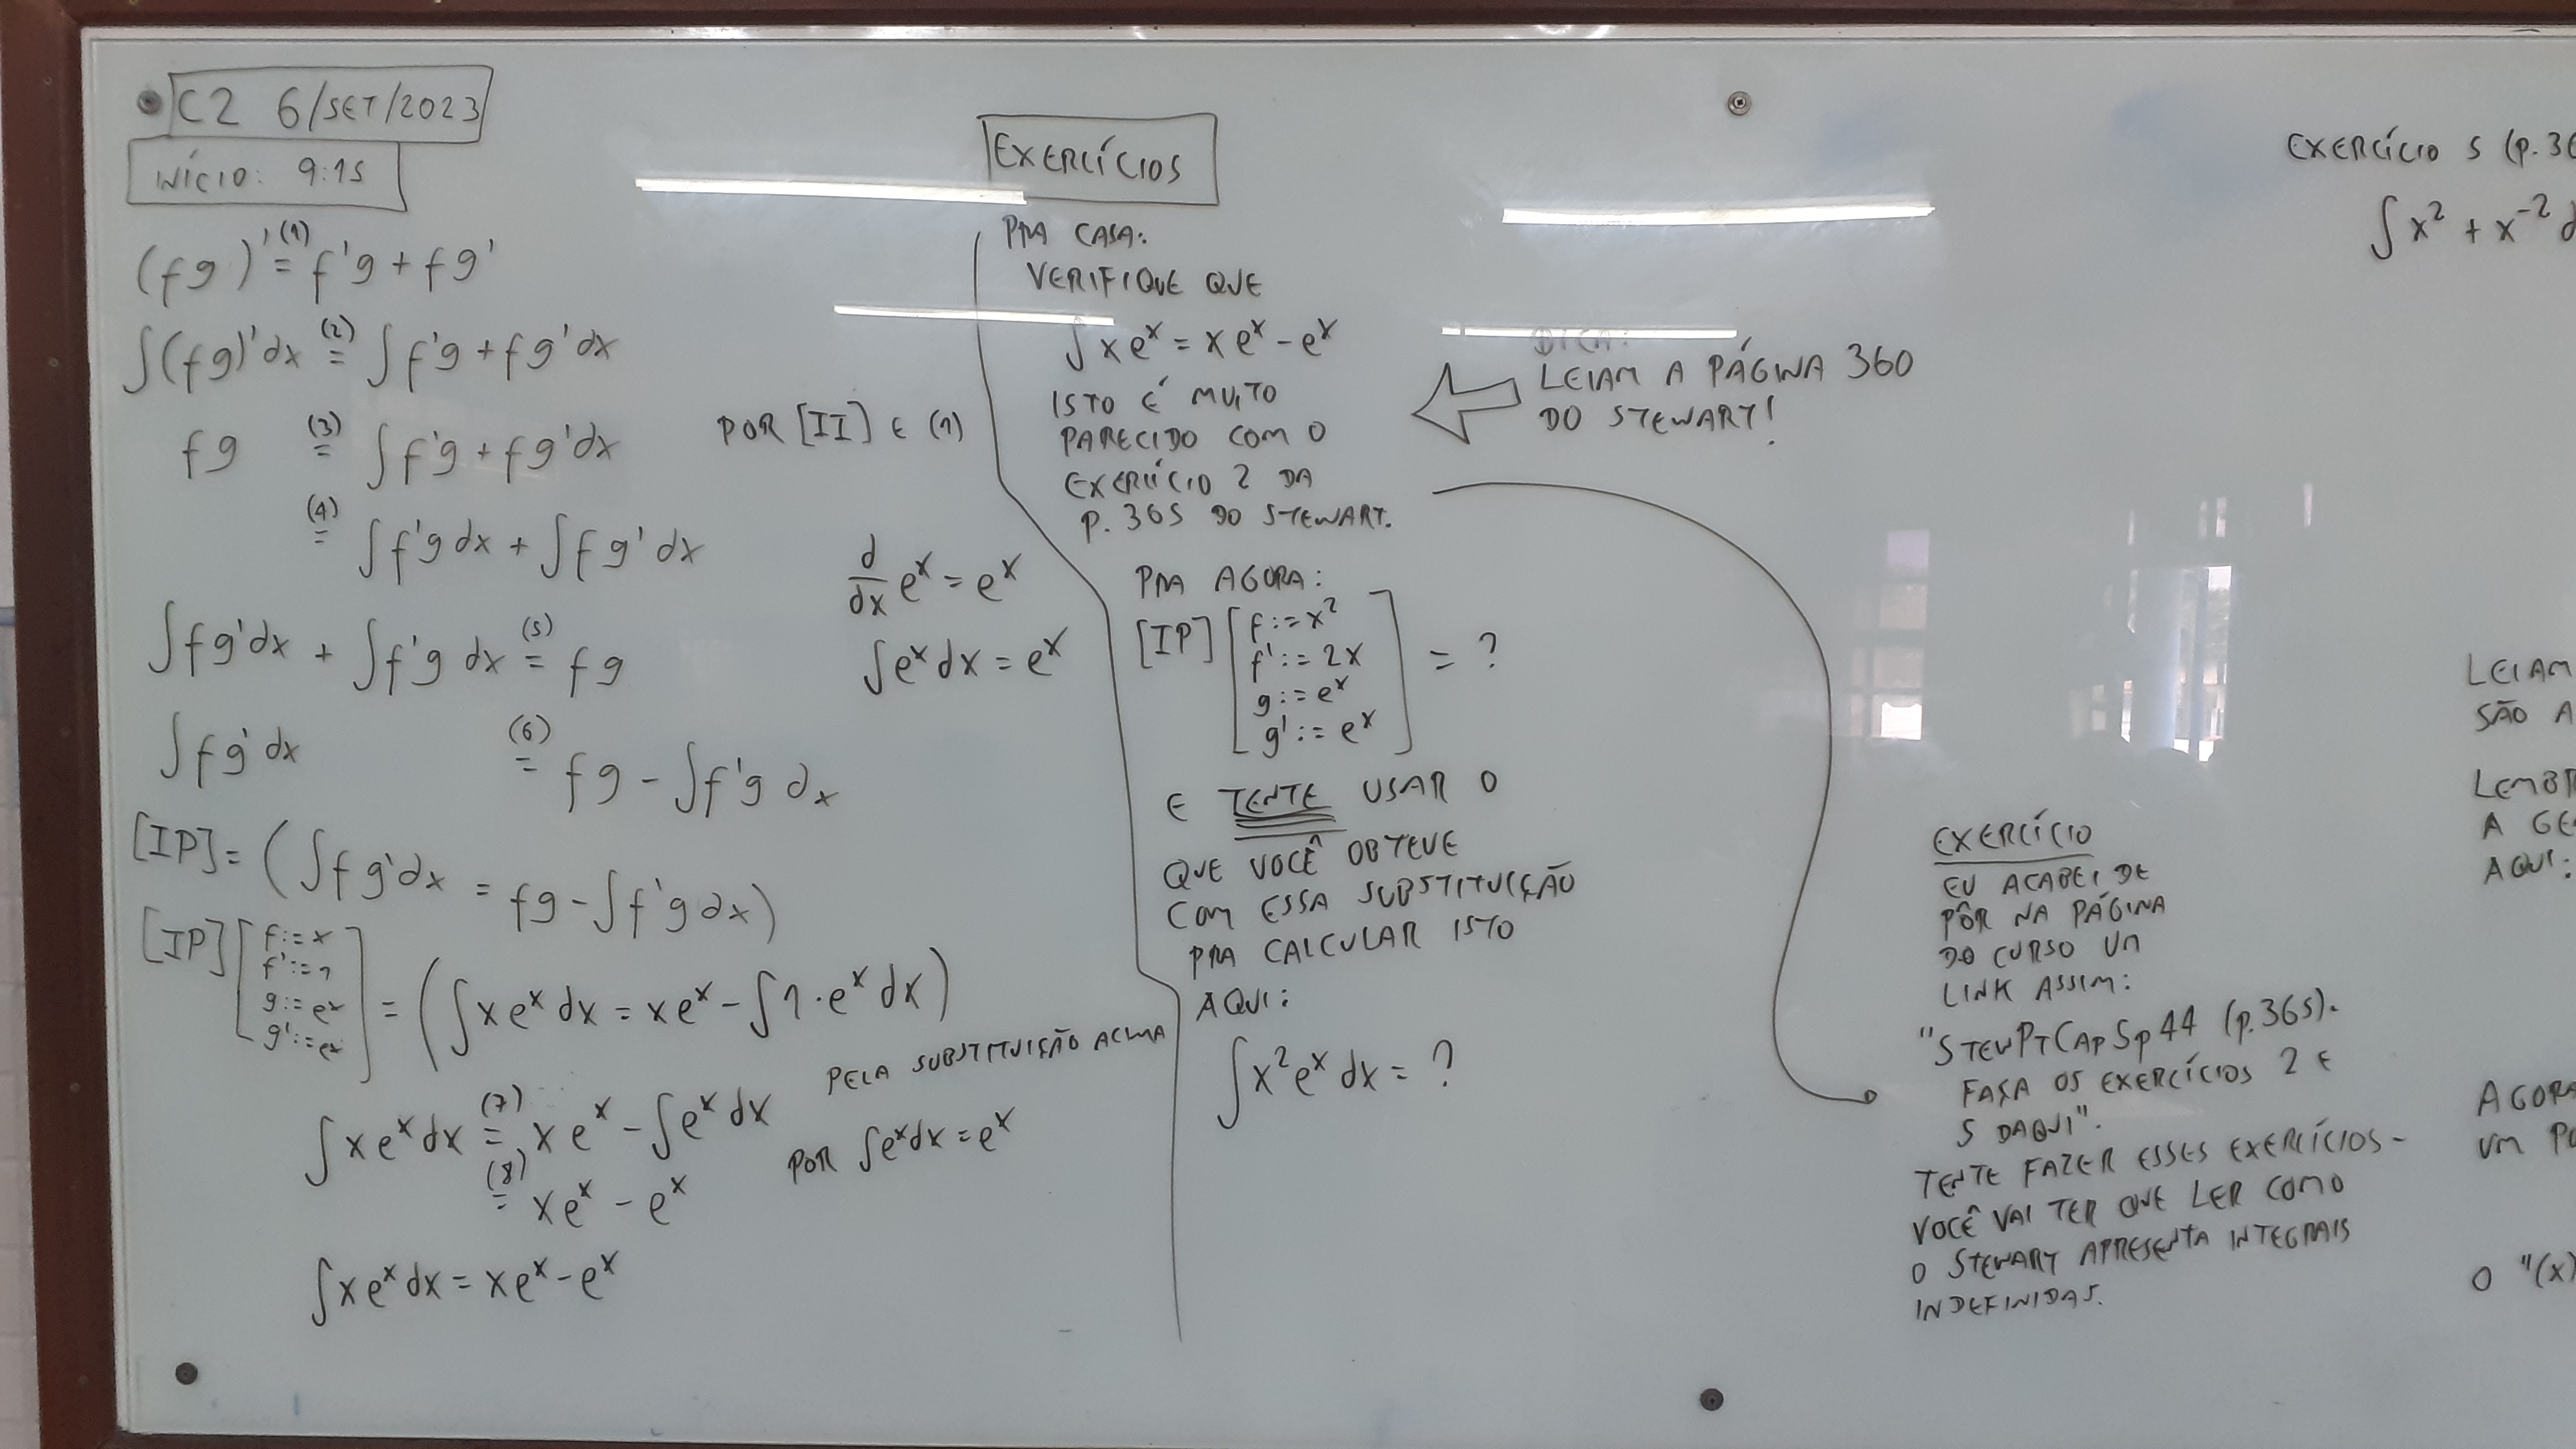 C2 6/SET/2023
INÍCIO: 9:15
(fg)' =(1) f'g + fg'
∫(fg)'dx =(2) ∫f'g + fg'dx
fg =(3) ∫f'g + fg'dx POR [II] E (1)
=(4) ∫f'g dx + ∫fg' dx
∫fg'dx + ∫f'g dx =(5) fg
∫fg'dx =(6) fg - ∫f'g dx
d/dx e^x = e^x
∫e^x dx = e^x
[IP] = (∫fg'dx = fg - ∫f'g dx)
[IP] [f := x
f' := 1
g := e^x
g' := e^x] = (∫xe^x dx = xe^x - ∫1·e^x dx)
∫xe^x dx =(7) xe^x - ∫e^x dx PELA SUBSTITUIÇÃO ACIMA
=(8) xe^x - e^x POR ∫e^x dx = e^x
∫xe^x dx = xe^x - e^x
EXERCÍCIOS
PRA CASA:
VERIFIQUE QUE
∫xe^x = xe^x - e^x
ISTO É MUITO
PARECIDO COM O
EXERCÍCIO 2 DA
P. 365 DO STEWART.
DICA:
LEIAM A PÁGINA 360
DO STEWART!
PRA AGORA:
[IP] [f := x²
f' := 2x
g := e^x
g' := e^x] = ?
E TENTE USAR O
QUE VOCÊ OBTEVE
COM ESSA SUBSTITUIÇÃO
PRA CALCULAR ISTO
AQUI:
∫x²e^x dx = ?
EXERCÍCIO
EU ACABEI DE
PÔR NA PÁGINA
DO CURSO UM
LINK ASSIM:
"STEWPTCAP5p44 (p.365).
FAÇA OS EXERCÍCIOS 2 E
5 DAQUI".
TENTE FAZER ESSES EXERCÍCIOS -
VOCÊ VAI TER QUE LER COMO
O STEWART APRESENTA INTEGRAIS
INDEFINIDAS.
EXERCÍCIO 5 (p.36
∫x² + x⁻² d
LEIAM
SÃO A
LEMBR
A GE
AQUI:
AGORA
UM PO
O "(x)